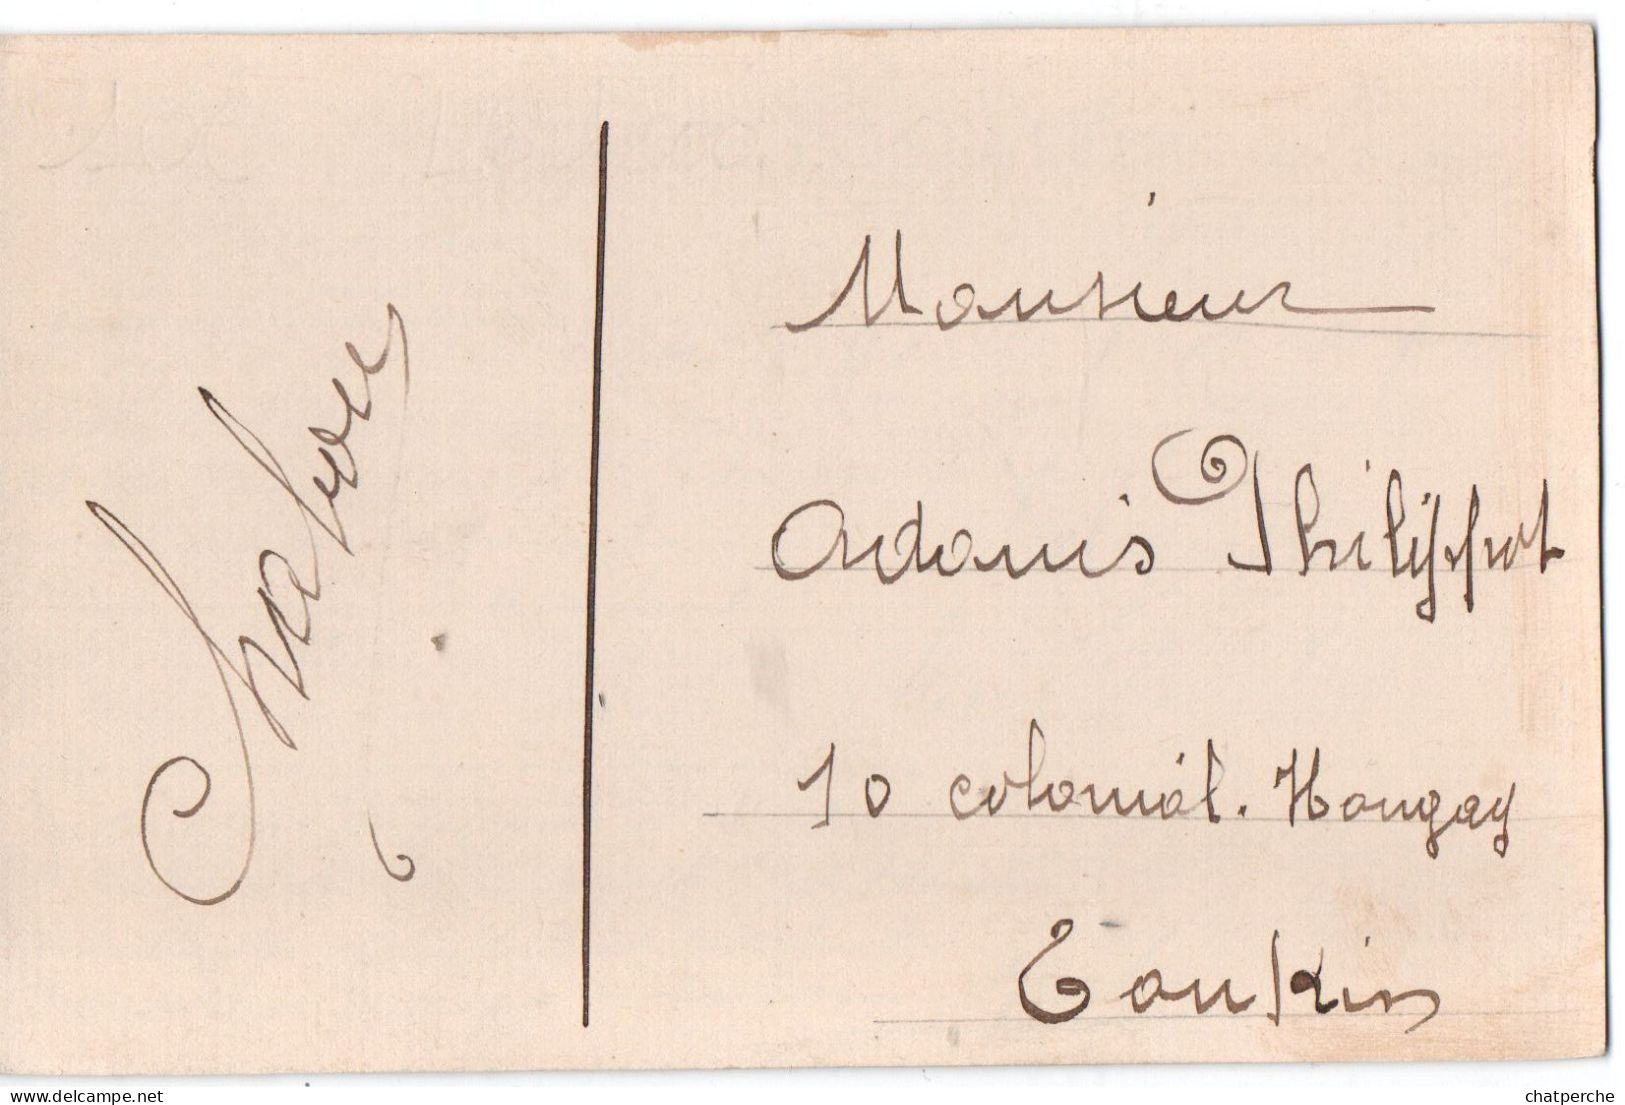 Monsieur
Adonis Philippot
10 colonial. Hongay
Tonkin
Delcampe.net
chatperche